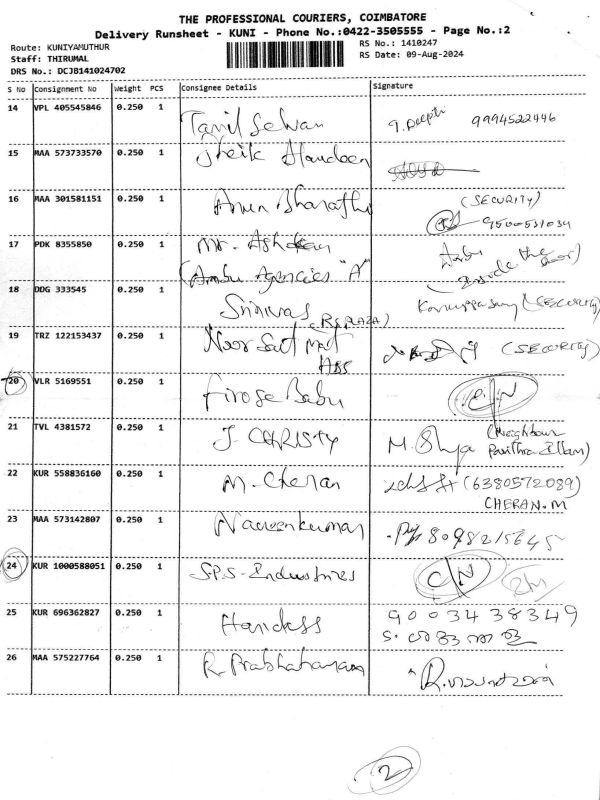 THE PROFESSIONAL COURIERS, COIMBATORE
Delivery Runsheet - KUNI - Phone No.:0422-3505555 - Page No.:2
Route: KUNIYAMUTHUR
RS No.: 1410247
Staff: THIRUMAL
RS Date: 09-Aug-2024
DRS No.: DCJB141024702
S No Consignment No Weight PCS Consignee Details Signature
14 VPL 405545846 0.250 1 Tamil Selvan 9994522446
15 MAA 573733570 0.250 1 Sheik Alaudeen
16 MAA 301581151 0.250 1 Arun Bharathi (SECURITY)
9500531034
17 PDK 8355850 0.250 1 Mr. Ashok
(Ambu Agencies "A" Ambu (Inside the door)
18 DDG 333545 0.250 1 Srinivas (RS PLAZA) Karuppasamy (SECURITY)
19 TRZ 122153437 0.250 1 Noor Sait (SECURITY)
20 VLR 5169551 0.250 1 Firose Babu C/N
21 TVL 4381572 0.250 1 J. CHRISTY M. (Neighbour
Pavithra Illam)
22 KUR 558836160 0.250 1 M. Cheran (6380572089)
CHERAN.M
23 MAA 573142807 0.250 1 Naveenkumar 8098215645
24 KUR 1000588051 0.250 1 S.P.S - Industries C/N
25 KUR 696362827 0.250 1 9003438349
26 MAA 575227764 0.250 1 R. Prabhakaran
2